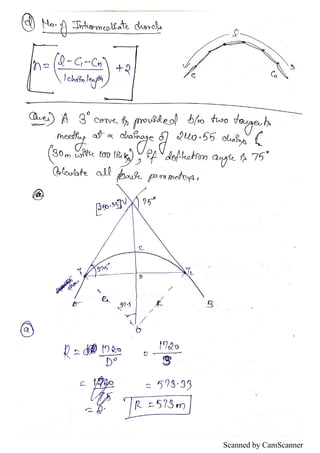 (d) No. of Intermediate chords
n = (l - C₁ - Cn / 1 chain length) + 2
l
C₁
Cn
(Ques) A 3° curve is provided b/w two tangents
meeting at a chainage of 240.55 chains
(30m with 100 links), if deflection angle is 75°
Calculate all basic parameters.
V
75°
C
T₁
37.5
D
T₂
A
R
37.5
R
B
O
(a)
R = 1720 / D° = 1720 / 3
= 1720 = 573.33
R = 573 m
Scanned by CamScanner